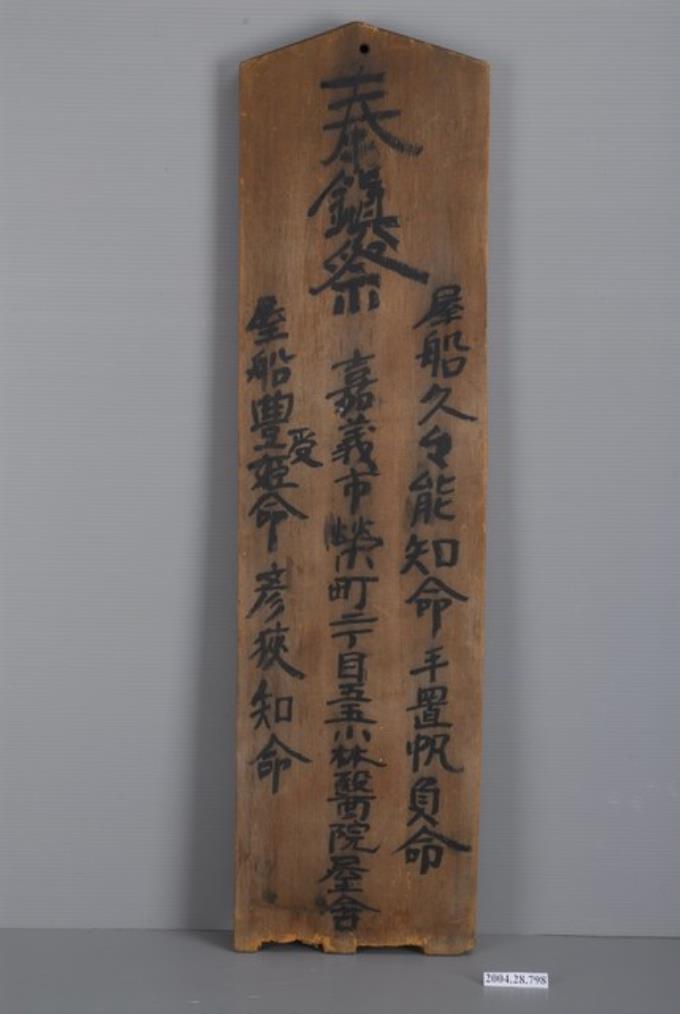 奉鎮祭
屋船久々能知命 手置帆負命
嘉義市榮町二丁目五五小林醫院屋舍
屋船豊受姫命 彦狹知命
2004.28.798